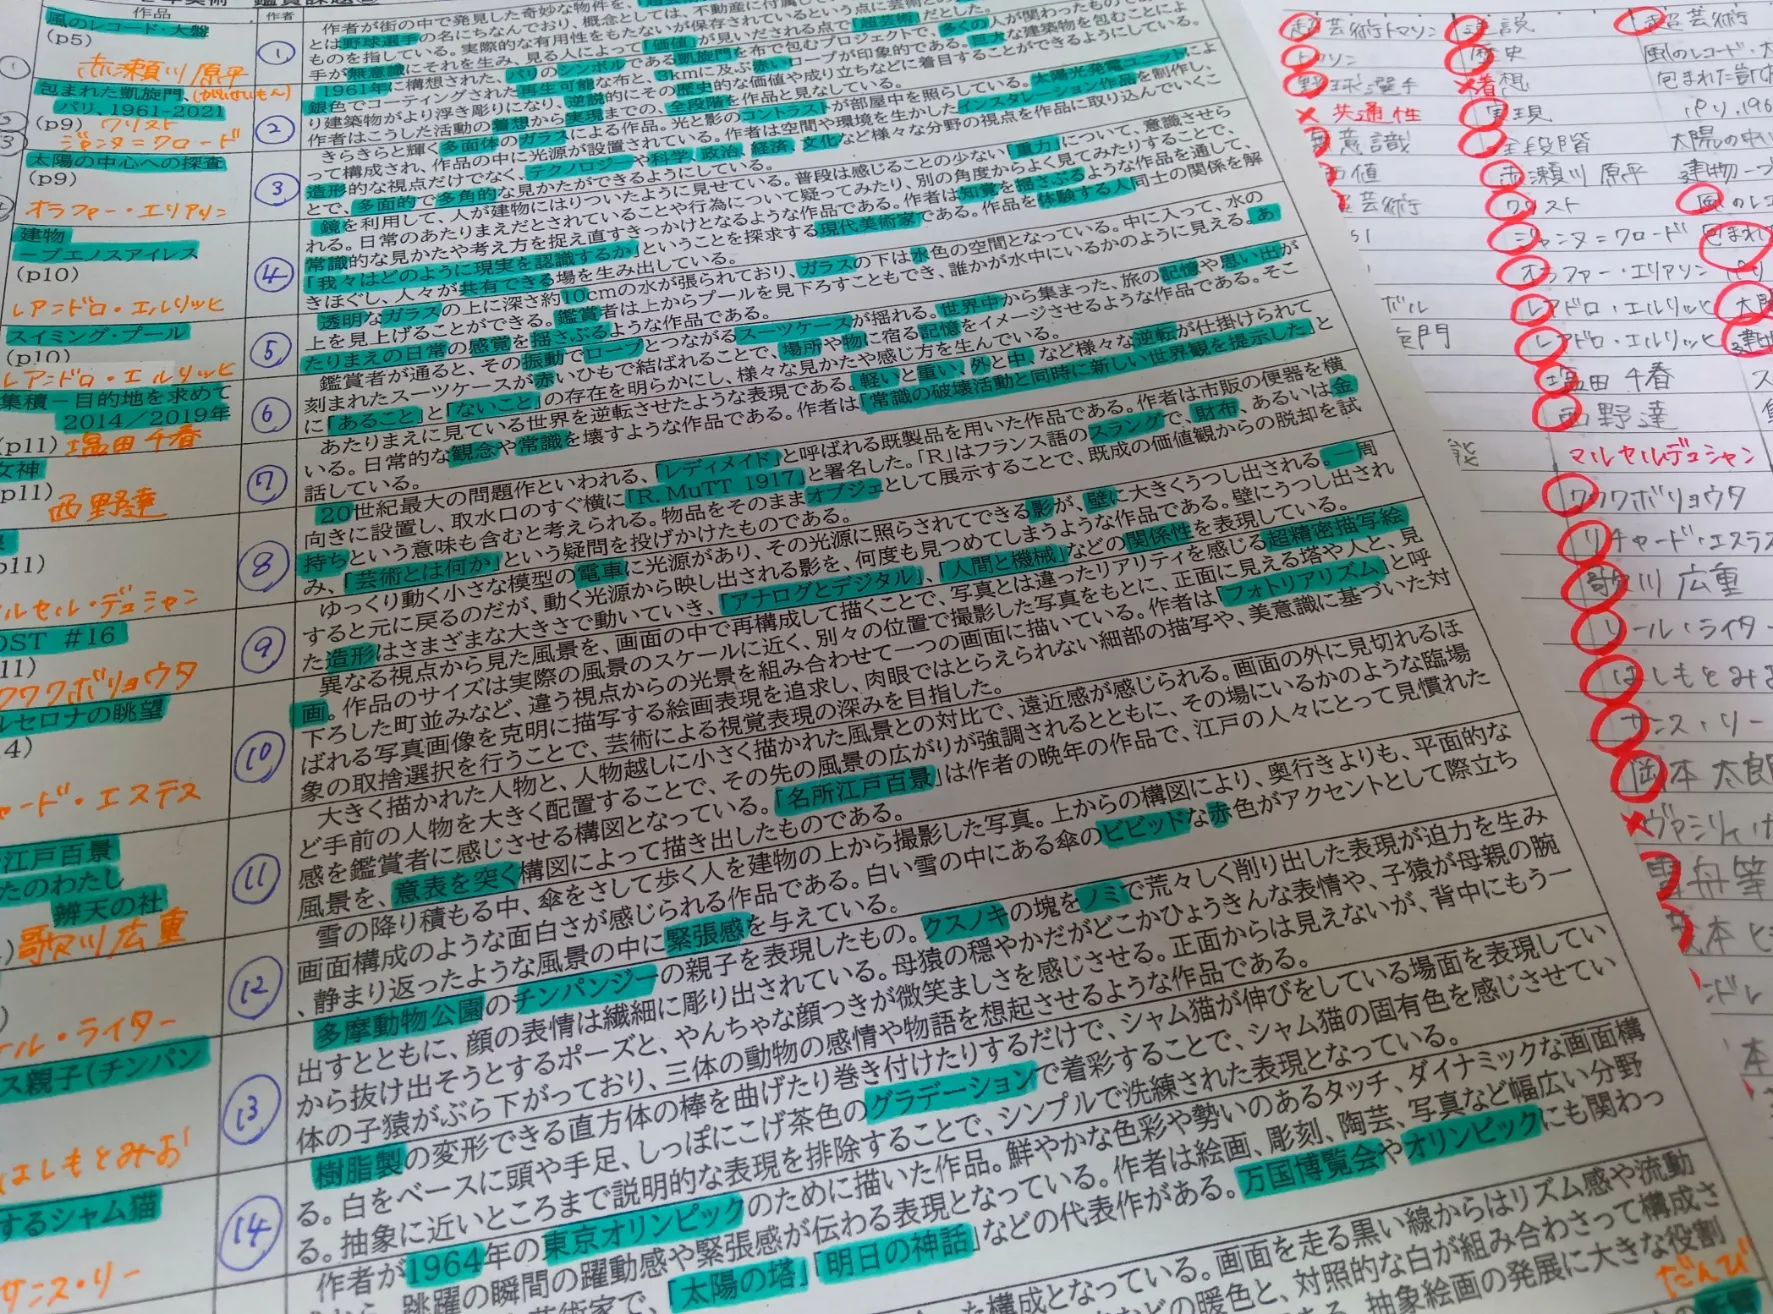 鑑賞課題
作品
作者
風のレコード・大盤
(p5)
赤瀬川 原平
包まれた凱旋門、(がいせんもん)
パリ、1961-2021
(p9) クリスト
ジャンヌ=クロード
太陽の中心への探査
(p9)
オラファー・エリアソン
建物
ーブエノスアイレス
(p10)
レアンドロ・エルリッヒ
スイミング・プール
(p10)
レアンドロ・エルリッヒ
集積－目的地を求めて
2014／2019年
(p11) 塩田 千春
女神
p11)
西野達
p11)
ルセル・デュシャン
OST #16
11)
クワクボリョウタ
ルセロナの眺望
4)
ャード・エステス
江戸百景
たのわたし
辨天の社
歌川 広重
ール・ライター
ス親子(チンパン
はしもとみお
するシャム猫
サンス・リー
①
作者が街の中で発見した奇妙な物件を、
とは野球選手の名にちなんでおり、概念としては、不動産に付属して
ものを指している。実際的な有用性をもたないが保存されているという点に芸術
手が無意識にそれを生み、見る人によって「価値」が見いだされる点で「超芸術」だとした。
②
1961年に構想された、パリのシンボルである凱旋門を布で包むプロジェクトで、多くの人が関わったもので
銀色でコーティングされた再生可能な布と、3kmに及ぶ赤いロープが印象的である。巨大な建築物を包むことによ
り建築物がより浮き彫りになり、逆説的にその歴史的な価値や成り立ちなどに着目することができるようにしている。
作者はこうした活動の着想から実現までの、全段階を作品と見なしている。
③
きらきらと輝く多面体のガラスによる作品。光と影のコントラストが部屋中を照らしている。太陽光発電ユニットによ
って構成され、作品の中に光源が設置されている。作者は空間や環境を生かしたインスタレーション作品を制作し、
造形的な視点だけでなく、テクノロジーや科学、政治、経済、文化など様々な分野の視点を作品に取り込んでいくこ
とで、多面的で多角的な見かたができるようにしている。
④
鏡を利用して、人が建物にはりついたように見せている。普段は感じることの少ない「重力」について、意識させら
れる。日常のあたりまえだとされていることや行為について疑ってみたり、別の角度からよく見てみたりすることで、
常識的な見かたや考え方を捉え直すきっかけとなるような作品である。作者は知覚を揺さぶるような作品を通して、
「我々はどのように現実を認識するか」ということを探求する現代美術家である。作品を体験する人同士の関係を解
きほぐし、人々が共有できる場を生み出している。
⑤
透明なガラスの上に深さ約10cmの水が張られており、ガラスの下は水色の空間となっている。中に入って、水の
上を見上げることができる。鑑賞者は上からプールを見下ろすこともでき、誰かが水中にいるかのように見える。あ
たりまえの日常の感覚を揺さぶるような作品である。
⑥
鑑賞者が通ると、その振動でロープとつながるスーツケースが揺れる。世界中から集まった、旅の記憶や思い出が
刻まれたスーツケースが赤いひもで結ばれることで、場所や物に宿る記憶をイメージさせるような作品である。そこ
に「あること」と「ないこと」の存在を明らかにし、様々な見かたや感じ方を生んでいる。
⑦
あたりまえに見ている世界を逆転させたような表現である。軽いと重い、外と中、など様々な逆転が仕掛けられて
いる。日常的な観念や常識を壊すような作品である。作者は「常識の破壊活動と同時に新しい世界観を提示した」と
話している。
⑧
20世紀最大の問題作といわれる、「レディメイド」と呼ばれる既製品を用いた作品である。作者は市販の便器を横
向きに設置し、取水口のすぐ横に「R. MuTT 1917」と署名した。「R」はフランス語のスラングで、財布、あるいは金
持ちという意味も含むと考えられる。物品をそのままオブジェとして展示することで、既成の価値観からの脱却を試
み、「芸術とは何か」という疑問を投げかけたものである。
⑨
ゆっくり動く小さな模型の電車に光源があり、その光源に照らされてできる影が、壁に大きくうつし出される。一周
すると元に戻るのだが、動く光源から映し出される影を、何度も見つめてしまうような作品である。壁にうつし出され
た造形はさまざまな大きさで動いていき、「アナログとデジタル」、「人間と機械」などの関係性を表現している。
⑩
異なる視点から見た風景を、画面の中で再構成して描くことで、写真とは違ったリアリティを感じる超精密描写絵
画。作品のサイズは実際の風景のスケールに近く、別々の位置で撮影した写真をもとに、正面に見える塔や人と、見
下ろした町並みなど、違う視点からの光景を組み合わせて一つの画面に描いている。作者は「フォトリアリズム」と呼
ばれる写真画像を克明に描写する絵画表現を追求し、肉眼ではとらえられない細部の描写や、美意識に基づいた対
象の取捨選択を行うことで、芸術による視覚表現の深みを目指した。
⑪
大きく描かれた人物と、人物越しに小さく描かれた風景との対比で、遠近感が感じられる。画面の外に見切れるほ
ど手前の人物を大きく配置することで、その先の風景の広がりが強調されるとともに、その場にいるかのような臨場
感を鑑賞者に感じさせる構図となっている。「名所江戸百景」は作者の晩年の作品で、江戸の人々にとって見慣れた
風景を、意表を突く構図によって描き出したものである。
⑫
雪の降り積もる中、傘をさして歩く人を建物の上から撮影した写真。上からの構図により、奥行きよりも、平面的な
画面構成のような面白さが感じられる作品である。白い雪の中にある傘のビビッドな赤色がアクセントとして際立ち
、静まり返ったような風景の中に緊張感を与えている。
⑬
多摩動物公園のチンパンジーの親子を表現したもの。クスノキの塊をノミで荒々しく削り出した表現が迫力を生み
出すとともに、顔の表情は繊細に彫り出されている。母猿の穏やかだがどこかひょうきんな表情や、子猿が母親の腕
から抜け出そうとするポーズと、やんちゃな顔つきが微笑ましさを感じさせる。正面からは見えないが、背中にもう一
体の子猿がぶら下がっており、三体の動物の感情や物語を想起させるような作品である。
⑭
樹脂製の変形できる直方体の棒を曲げたり巻き付けたりするだけで、シャム猫が伸びをしている場面を表現してい
る。白をベースに頭や手足、しっぽにこげ茶色のグラデーションで着彩することで、シャム猫の固有色を感じさせてい
る。抽象に近いところまで説明的な表現を排除することで、シンプルで洗練された表現となっている。
作者が1964年の東京オリンピックのために描いた作品。鮮やかな色彩や勢いのあるタッチ、ダイナミックな画面構
跳躍の瞬間の躍動感や緊張感が伝わる表現となっている。作者は絵画、彫刻、陶芸、写真など幅広い分野
「太陽の塔」「明日の神話」などの代表作がある。万国博覧会やオリンピックにも関わっ
構成となっている。画面を走る黒い線からはリズム感や流動
などの暖色と、対照的な白が組み合わさって構成さ
抽象絵画の発展に大きな役割
だんぴ
超芸術トマソン
トマソン
野球選手
共通性
無意識
価値
超芸術
ボル
旋門
能
逆説
歴史
着想
実現
全段階
赤瀬川 原平
クリスト
ジャンヌ=クロード
オラファー・エリアソン
レアドロ・エルリッヒ
レアドロ・エルリッヒ
塩田 千春
西野達
マルセルデュシャン
クワクボリョウタ
リチャード・エステス
歌川 広重
ソール・ライター
はしもとみお
サンス・リー
岡本 太郎
ヴァシリィ
雪舟等
超芸術
風のレコード・
包まれた凱
パリ,196
太陽の中
建物
風のレコ
包まれ
パリ
太陽
建物